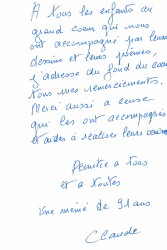 A tous les enfants au
grand coeur qui nous
ont accompagné par leurs
dessins et leurs poèmes,
j'adresse du fond du coeur
tous mes remerciements.
Merci aussi à ceux
qui les ont accompagnés
et aidés à réaliser leurs
à tous
et à toutes
Une mémé de 91 ans
Claude